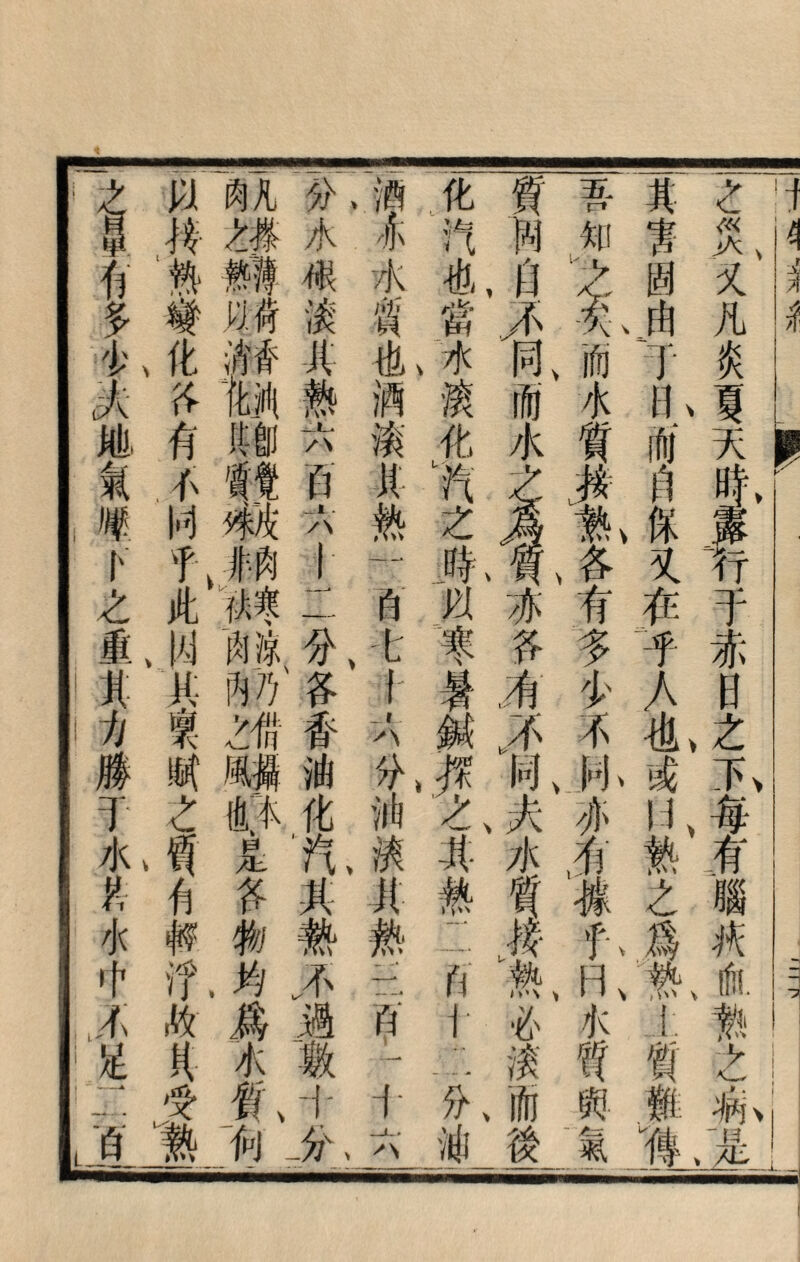 之災、又凡炎夏天時、露行于赤日之下、每有腦疾血熱之病、是
其害固由于日、而自保又在乎人也、或曰、熱之爲熱、土質難傳、
吾知之矣、而水質接熱、各有多少不同、亦有據乎、曰、水質與氣
質固自不同、而水之爲質、亦各有不同、夫水質接熱、必滾而後
化汽也、當水滾化汽之時、以寒暑鍼探之、其熱二百十二分、油
酒亦水質也、酒滾其熱一百七十六分、油滾其熱三百一十六
分、水銀滾其熱六百六十二分、各香油化汽、其熱不過數十分、
凡搽薄荷香油卽覺皮肉寒涼、乃借攝本
肉之熱以消化其質殊非祛肉內之風也、
是各物均爲水質、何
以接熱變化各有不同乎、此因其稟賦之質有輕浮、故其受熱
之量有多少、夫地氣壓下之重、其力勝于水、若水中不足二百